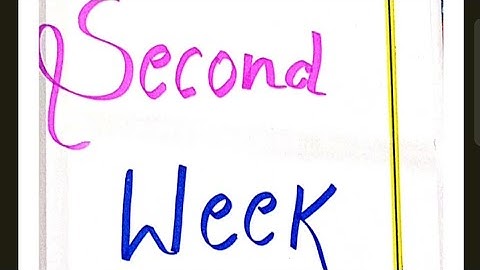 Second
Week